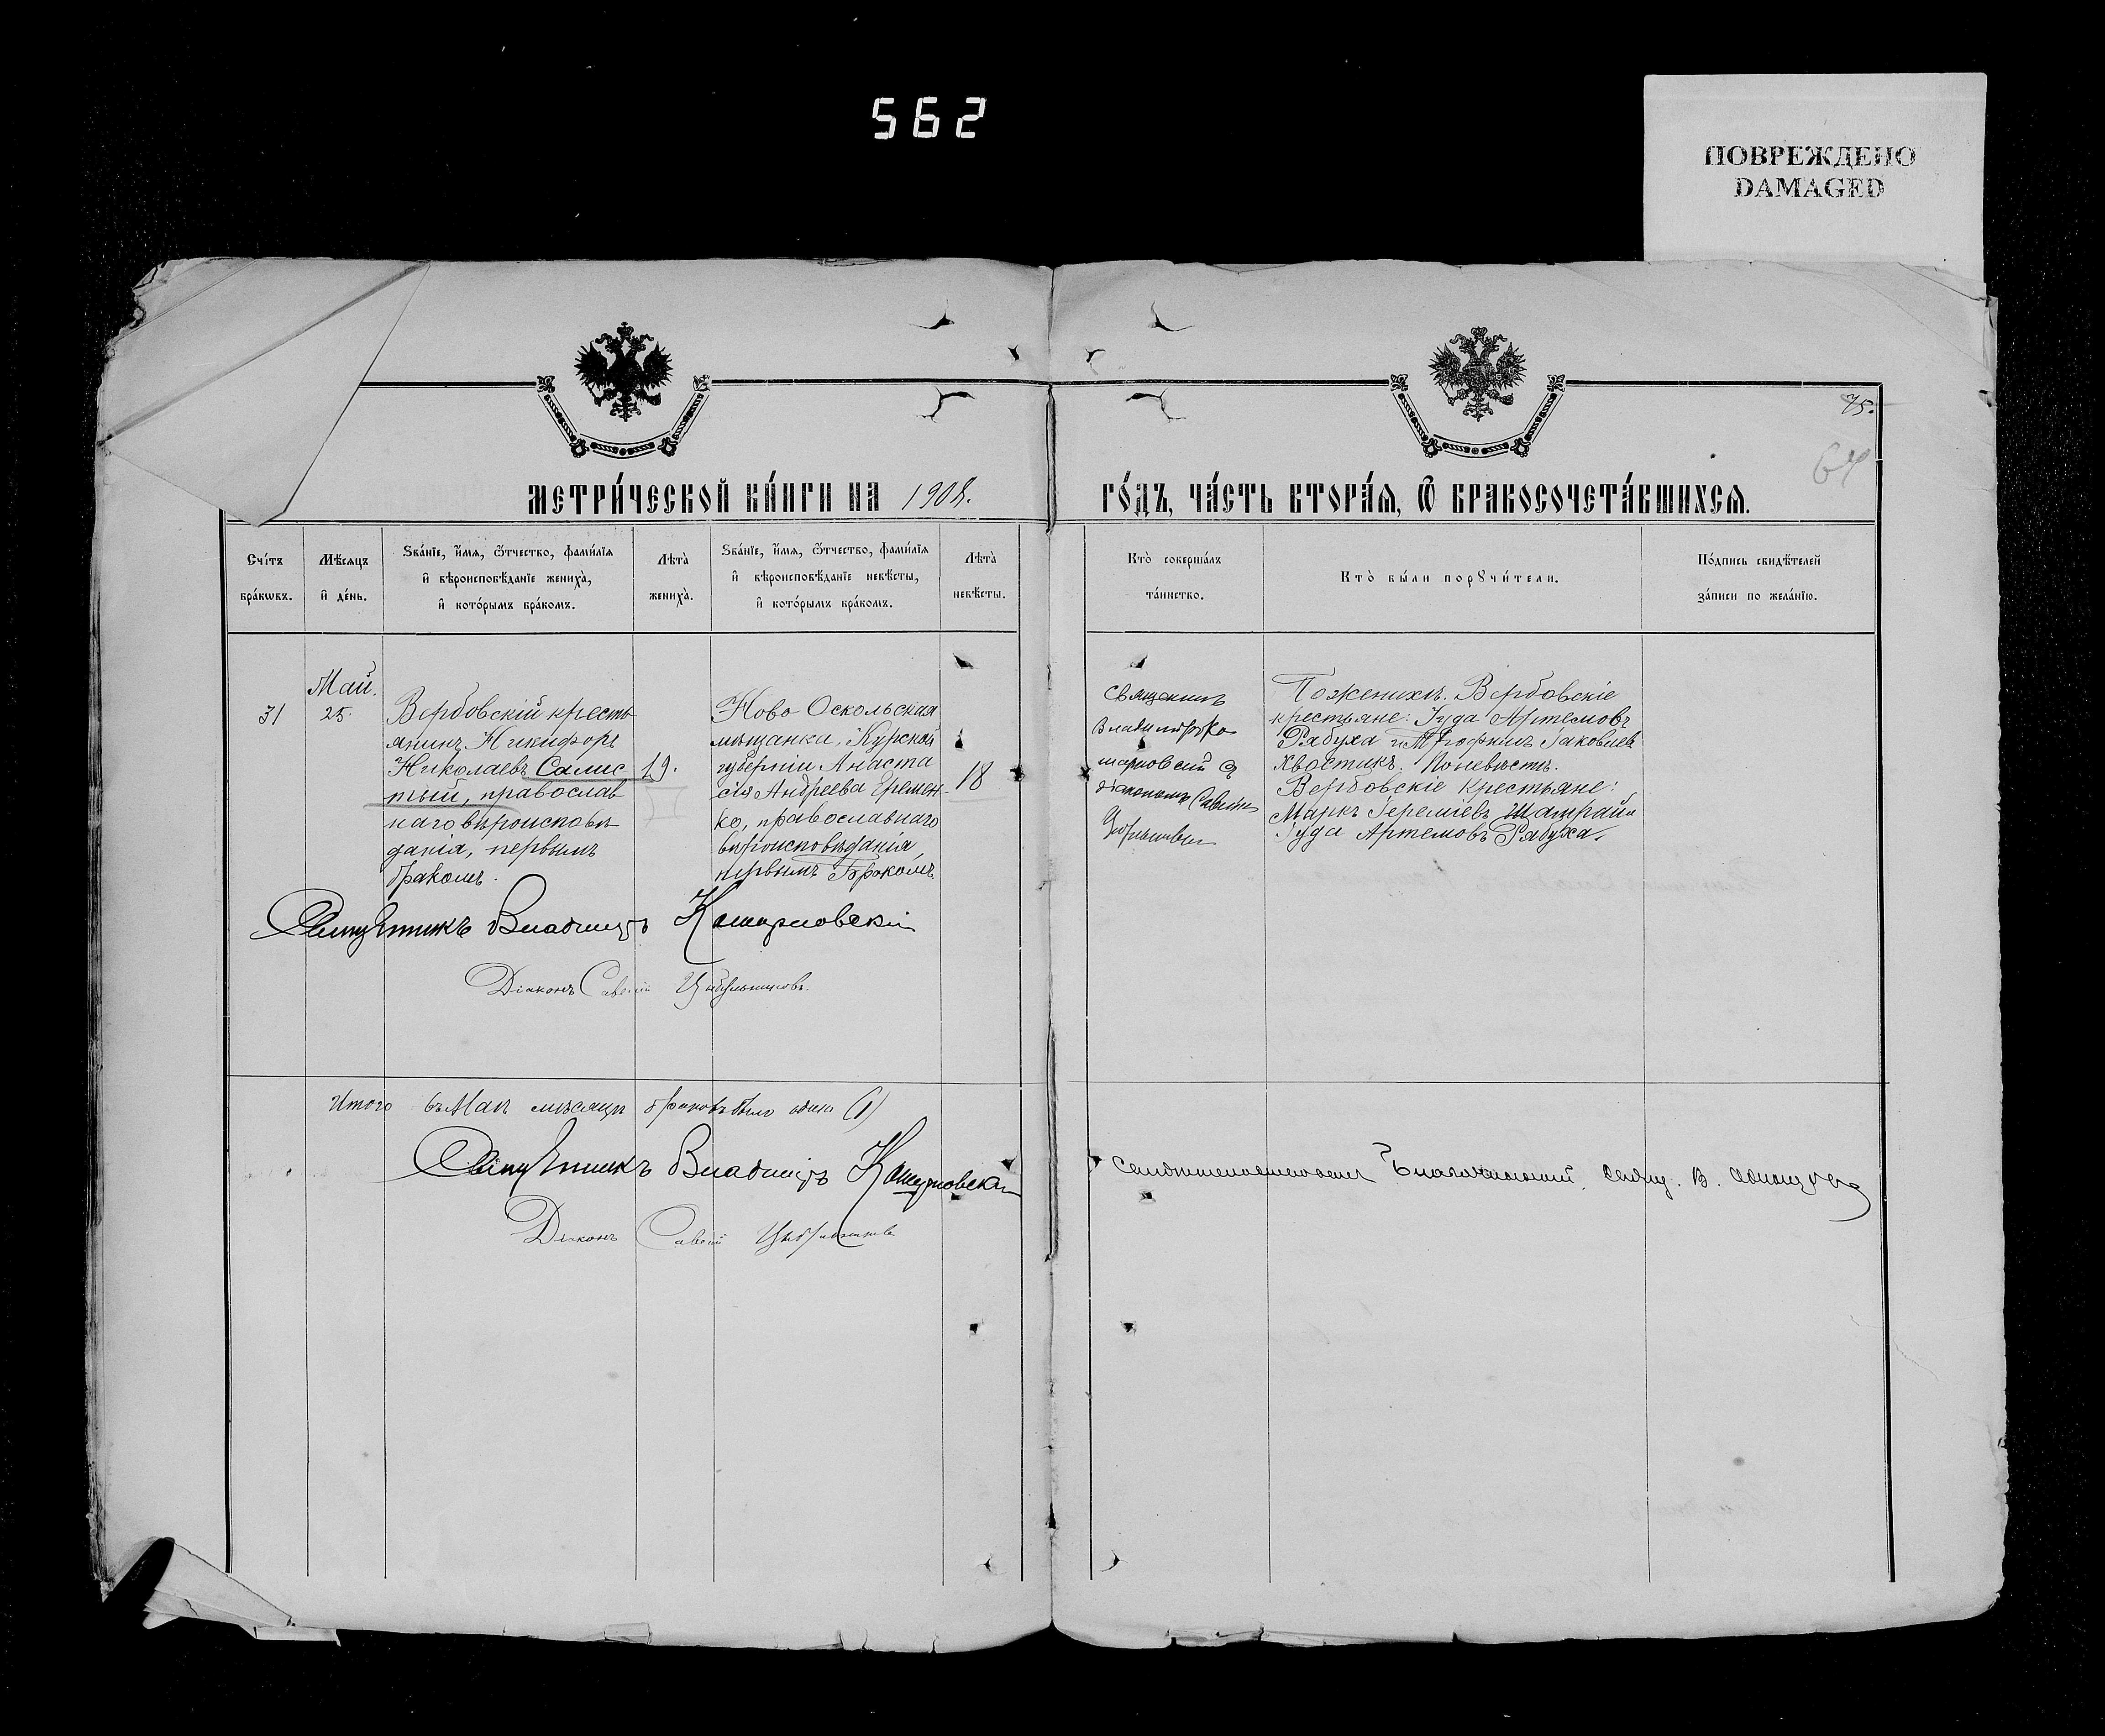 562
ПОВРЕЖДЕНО
DAMAGED
75.
64
МЕТРИ́ЧЕСКОЙ КНИ́ГИ НА 1908.
ГО́ДЪ, ЧА́СТЬ ВТОРА́Ѧ, Ѿ БРАКОСОЧЕТА́ВШИХСѦ.
Сче́тъ бра́кѡвъ.
Мѣ́сяцъ и҆ де́нь.
Ѕва́нїе, и҆́мѧ, ѻ҆́тчество, фами́лїѧ
и҆ вѣроисповѣ́данїе жениха̀,
и҆ кото́рымъ бра́комъ.
Лѣта̀
жениха̀.
Ѕва́нїе, и҆́мѧ, ѻ҆́тчество, фами́лїѧ
и҆ вѣроисповѣ́данїе невѣ́сты,
и҆ кото́рымъ бра́комъ.
Лѣта̀
невѣ́сты.
Кто̀ соверша́лъ
та́инство.
Кто̀ бы́ли порꙋчи́тели.
По́дпись свидѣ́телей
за́писи по жела́нїю.
31
Май.
25.
Вербовскій кресть
янинъ Никифоръ
Николаевъ Салис
тый, православ
наго вѣроисповѣ
данія, первымъ
бракомъ.
19.
Ново Оскольская
мѣщанка, Курской
губерніи Анаста
сія Андреева Гремен
ко, православнаго
вѣроисповѣданія
первымъ бракомъ.
18
Священникъ
Владиміръ Ка
шарновскій съ
діакономъ Савеліемъ
По женихѣ. Вербовскіе
крестьяне: Іуда Артемовъ
Рябуха и Трофимъ Іаковлевъ
Хвостикъ. По невѣстѣ.
Вербовскіе крестьяне:
Маркъ Іереміевъ Шатрай и
Іуда Артемовъ Рябуха.
Священникъ Владиміръ Кашарновскій
Діаконъ Савелій Цыбульниковъ.
Итого въ Маѣ мѣсяцѣ браковъ было одинъ (1)
Священникъ Владиміръ Кашарновскій
Діаконъ Савелій Цыбульниковъ
Благочинный, свящ. В.